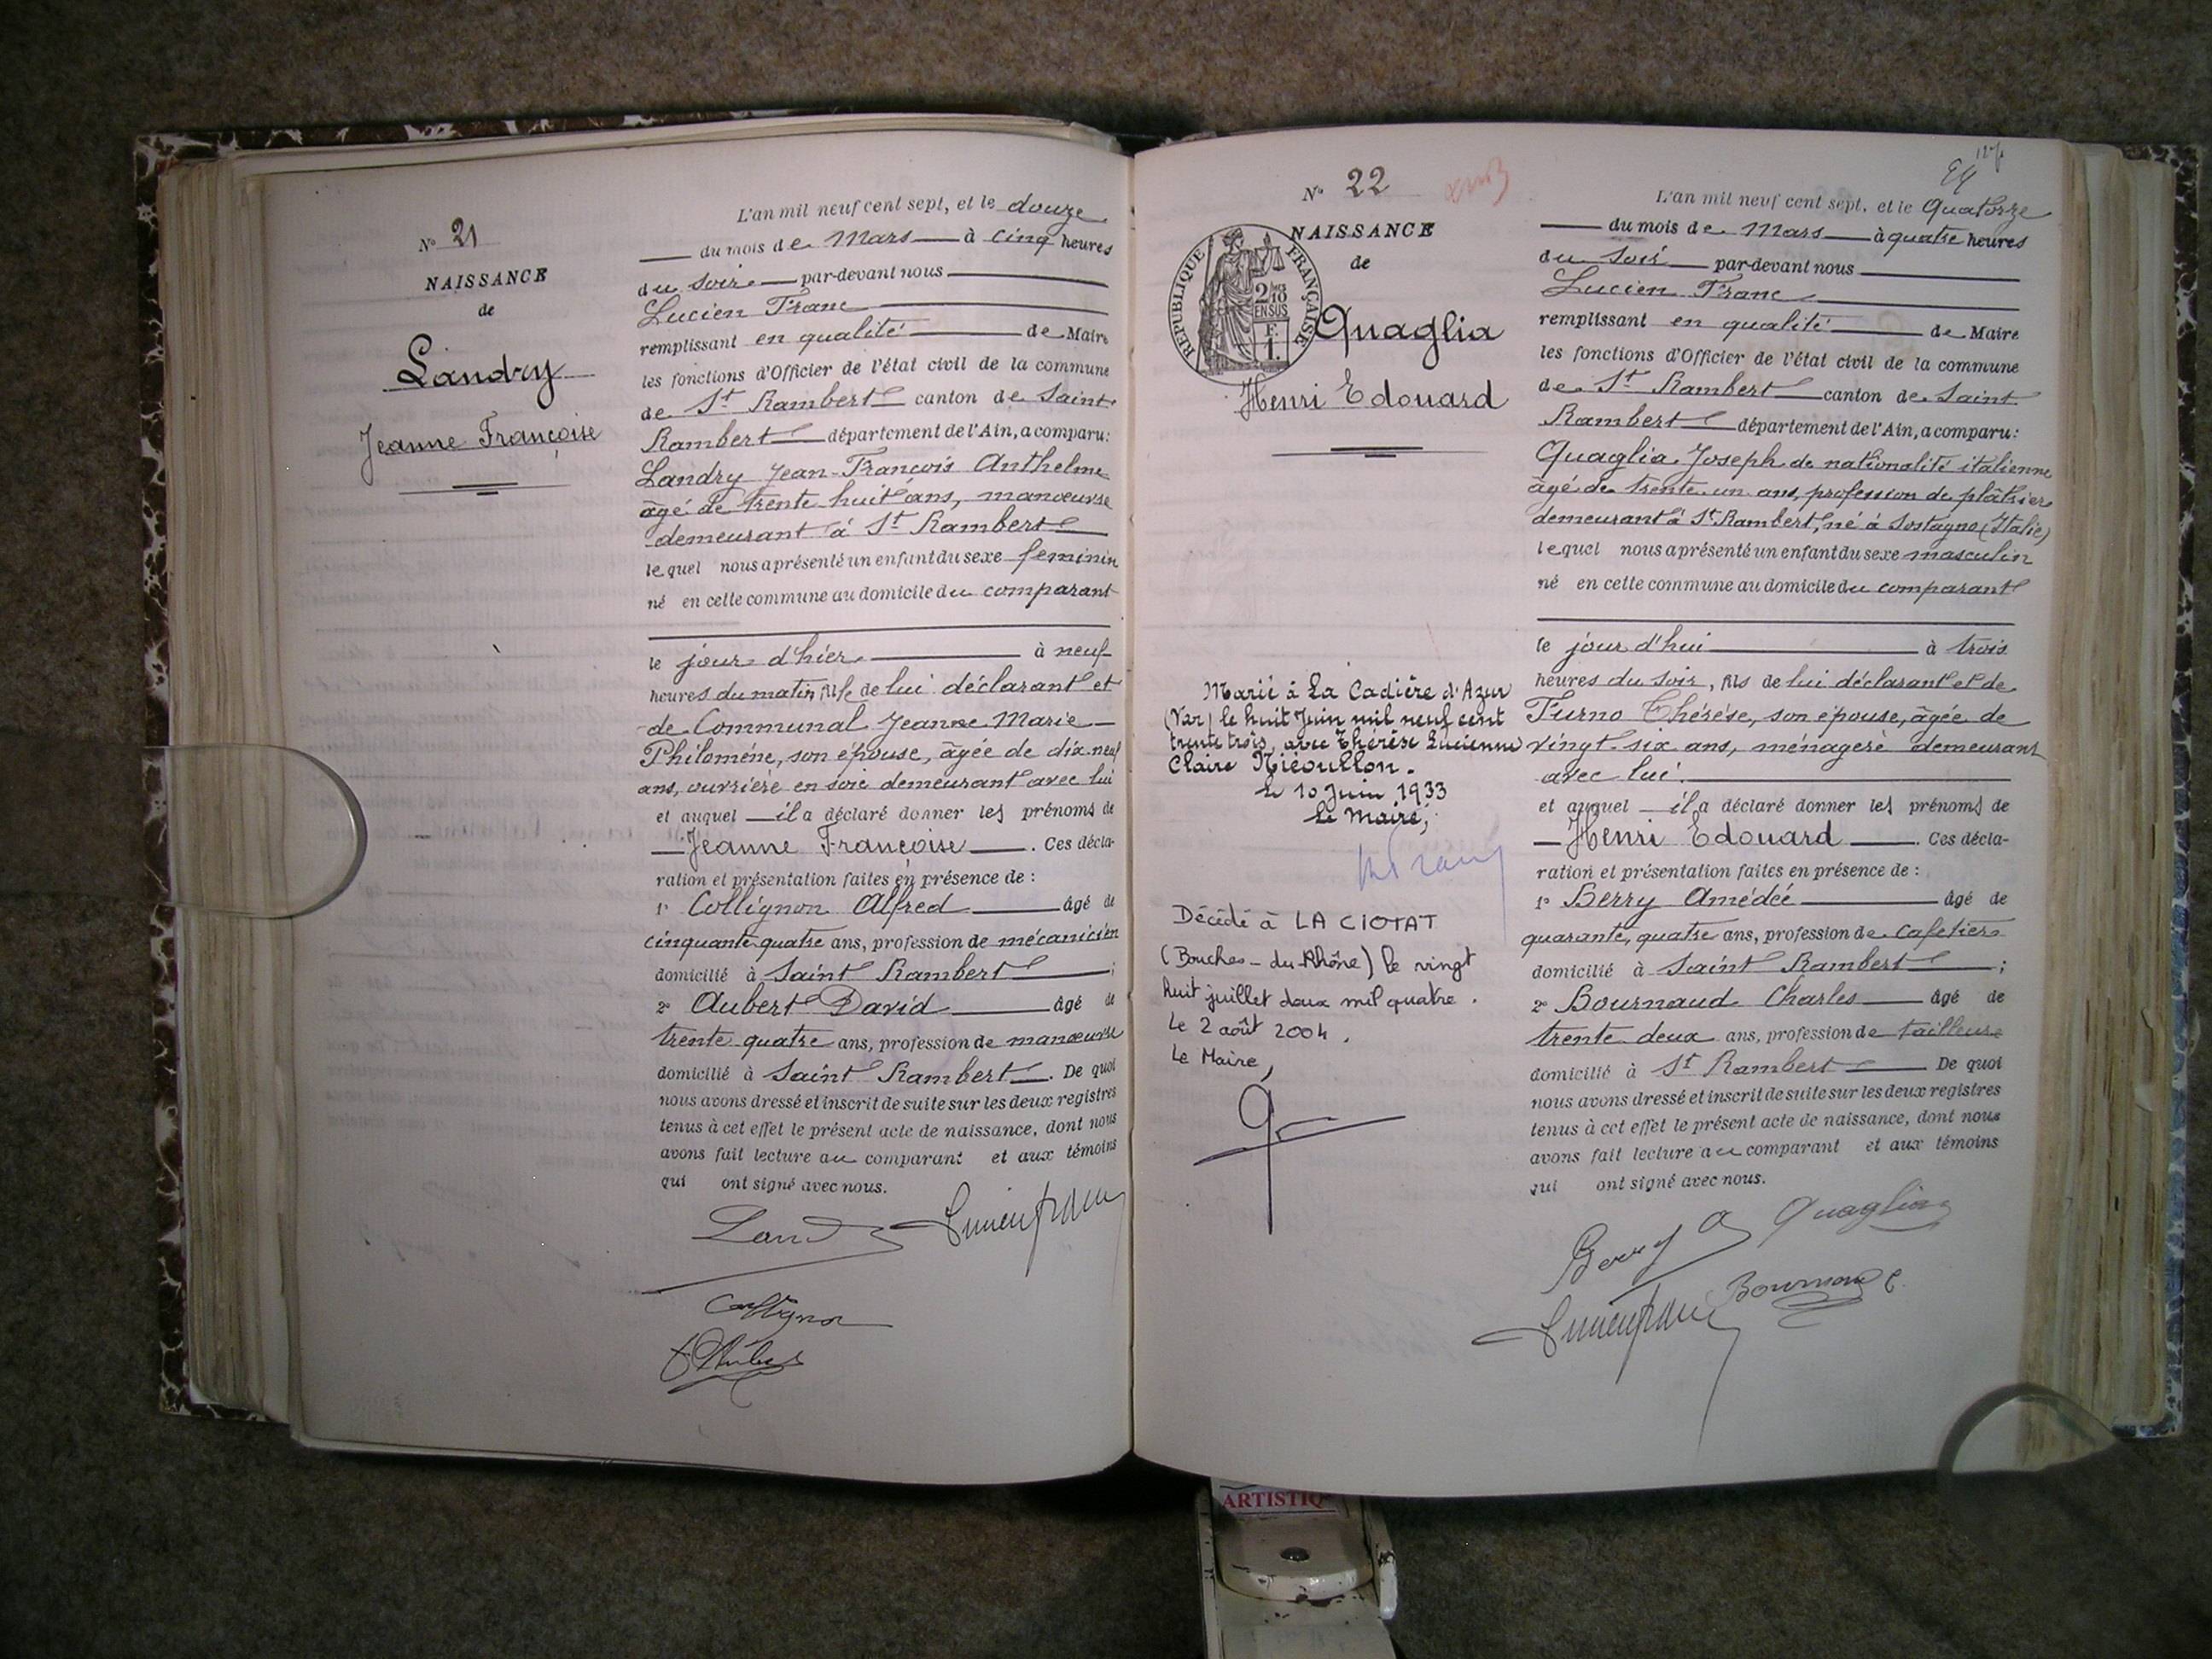 N° 21
NAISSANCE
de
Landry
Jeanne Françoise
L'an mil neuf cent sept, et le douze
du mois de Mars à cinq heures
du soir par-devant nous
Lucien Franc
remplissant en qualité de Maire
les fonctions d'Officier de l'état civil de la commune
de St Rambert canton de Saint
Rambert département de l'Ain, a comparu:
Landry Jean-François Anthelme
âgé de trente huit ans, manœuvre
demeurant à St Rambert
lequel nous a présenté un enfant du sexe feminin
né en cette commune au domicile du comparant
le jour d'hier à neuf
heures du matin, fille de lui déclarant et
de Communal Jeanne Marie
Philomène, son épouse, âgée de dix-neuf
ans, ouvrière en soie demeurant avec lui
et auquel il a déclaré donner les prénoms de
Jeanne Françoise. Ces décla-
ration et présentation faites en présence de :
1° Collignon Alfred âgé de
cinquante quatre ans, profession de mécanicien
domicilié à Saint Rambert ;
2° Aubert David âgé de
trente quatre ans, profession de manœuvre
domicilié à Saint Rambert. De quoi
nous avons dressé et inscrit de suite sur les deux registres
tenus à cet effet le présent acte de naissance, dont nous
avons fait lecture au comparant et aux témoins
qui ont signé avec nous.
Landry Lucien Franc
Collignon
Aubert
N° 22
NAISSANCE
de
RÉPUBLIQUE FRANÇAISE
2/10
EN SUS
F.
1.
Quaglia
Henri Edouard
Marié à La Cadière d'Azur
(Var) le huit Juin mil neuf cent
trente trois, avec Thérèse Lucienne
Claire Niéoullon.
Le 10 Juin 1933
Le Maire,
Décédé à LA CIOTAT
(Bouches-du-Rhône) le vingt
huit juillet deux mil quatre.
Le 2 août 2004.
Le Maire,
L'an mil neuf cent sept, et le Quatorze
du mois de Mars à quatre heures
du soir par-devant nous
Lucien Franc
remplissant en qualité de Maire
les fonctions d'Officier de l'état civil de la commune
de St Rambert canton de Saint
Rambert département de l'Ain, a comparu:
Quaglia Joseph de nationalité italienne
âgé de trente un ans, profession de plâtrier
demeurant à St Rambert, né à Sostegno (Italie)
lequel nous a présenté un enfant du sexe masculin
né en cette commune au domicile du comparant
le jour d'hui à trois
heures du soir, fils de lui déclarant et de
Furno Thérèse, son épouse, âgée de
vingt-six ans, ménagère demeurant
avec lui.
et auquel il a déclaré donner les prénoms de
Henri Edouard. Ces décla-
ration et présentation faites en présence de :
1° Berry Amédée âgé de
quarante quatre ans, profession de Cafetier
domicilié à Saint Rambert ;
2° Bournaud Charles âgé de
trente deux ans, profession de tailleur
domicilié à St Rambert De quoi
nous avons dressé et inscrit de suite sur les deux registres
tenus à cet effet le présent acte de naissance, dont nous
avons fait lecture au comparant et aux témoins
qui ont signé avec nous.
Berry A Quaglia
Lucien Franc Bournaud C.
ARTISTIQ